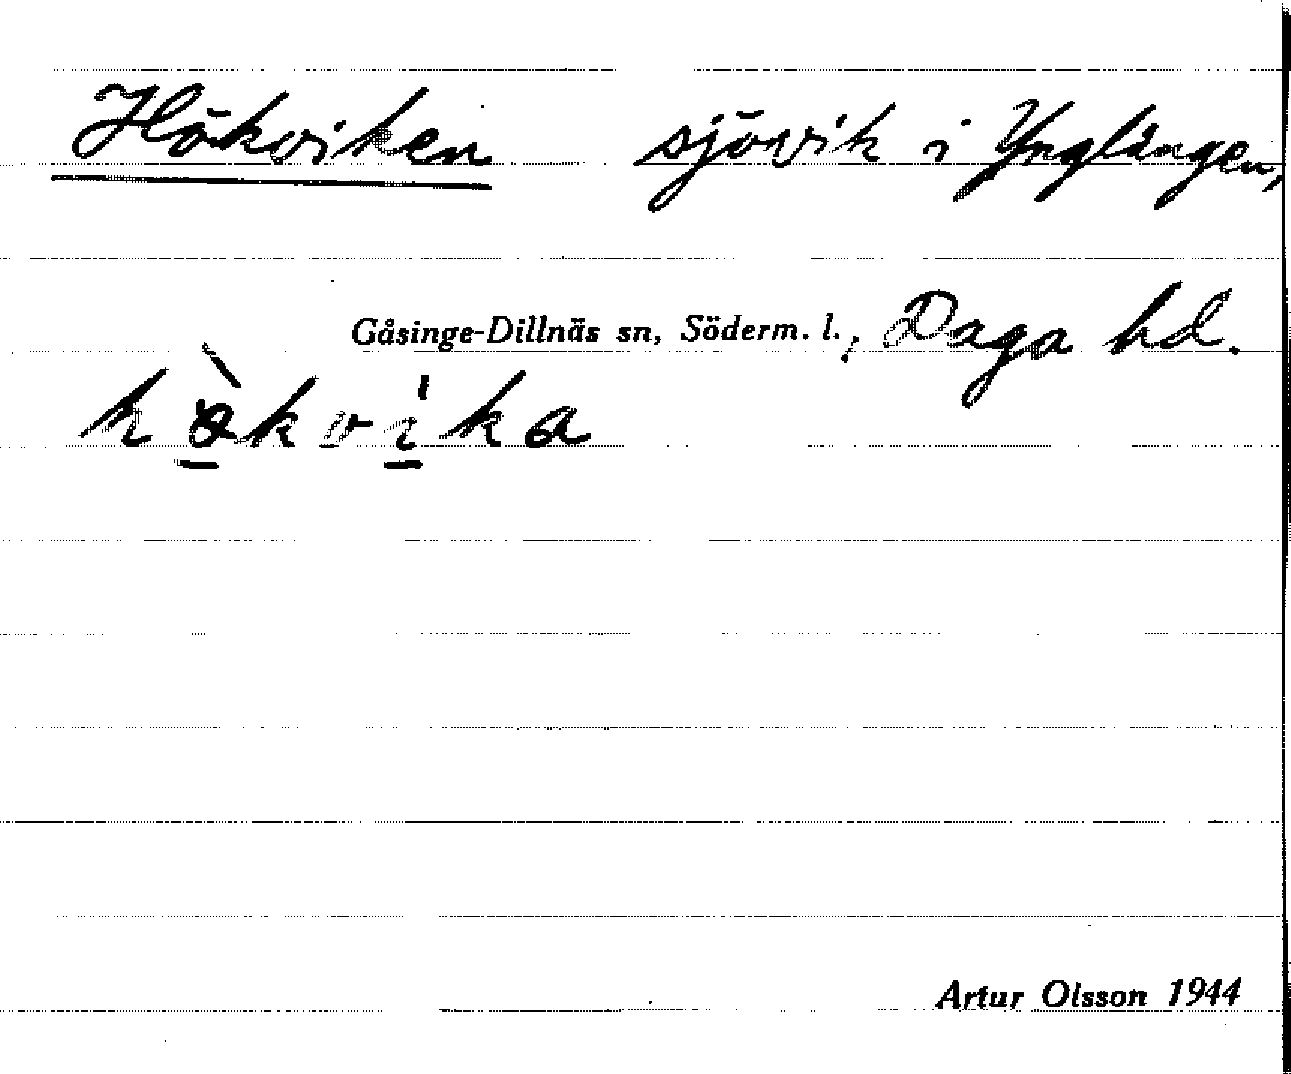 Hökviken sjövik i Ynglingen,
Gåsinge-Dillnäs sn, Söderm. l., Daga hd.
hö̀kvi̍ka
Artur Olsson 1944